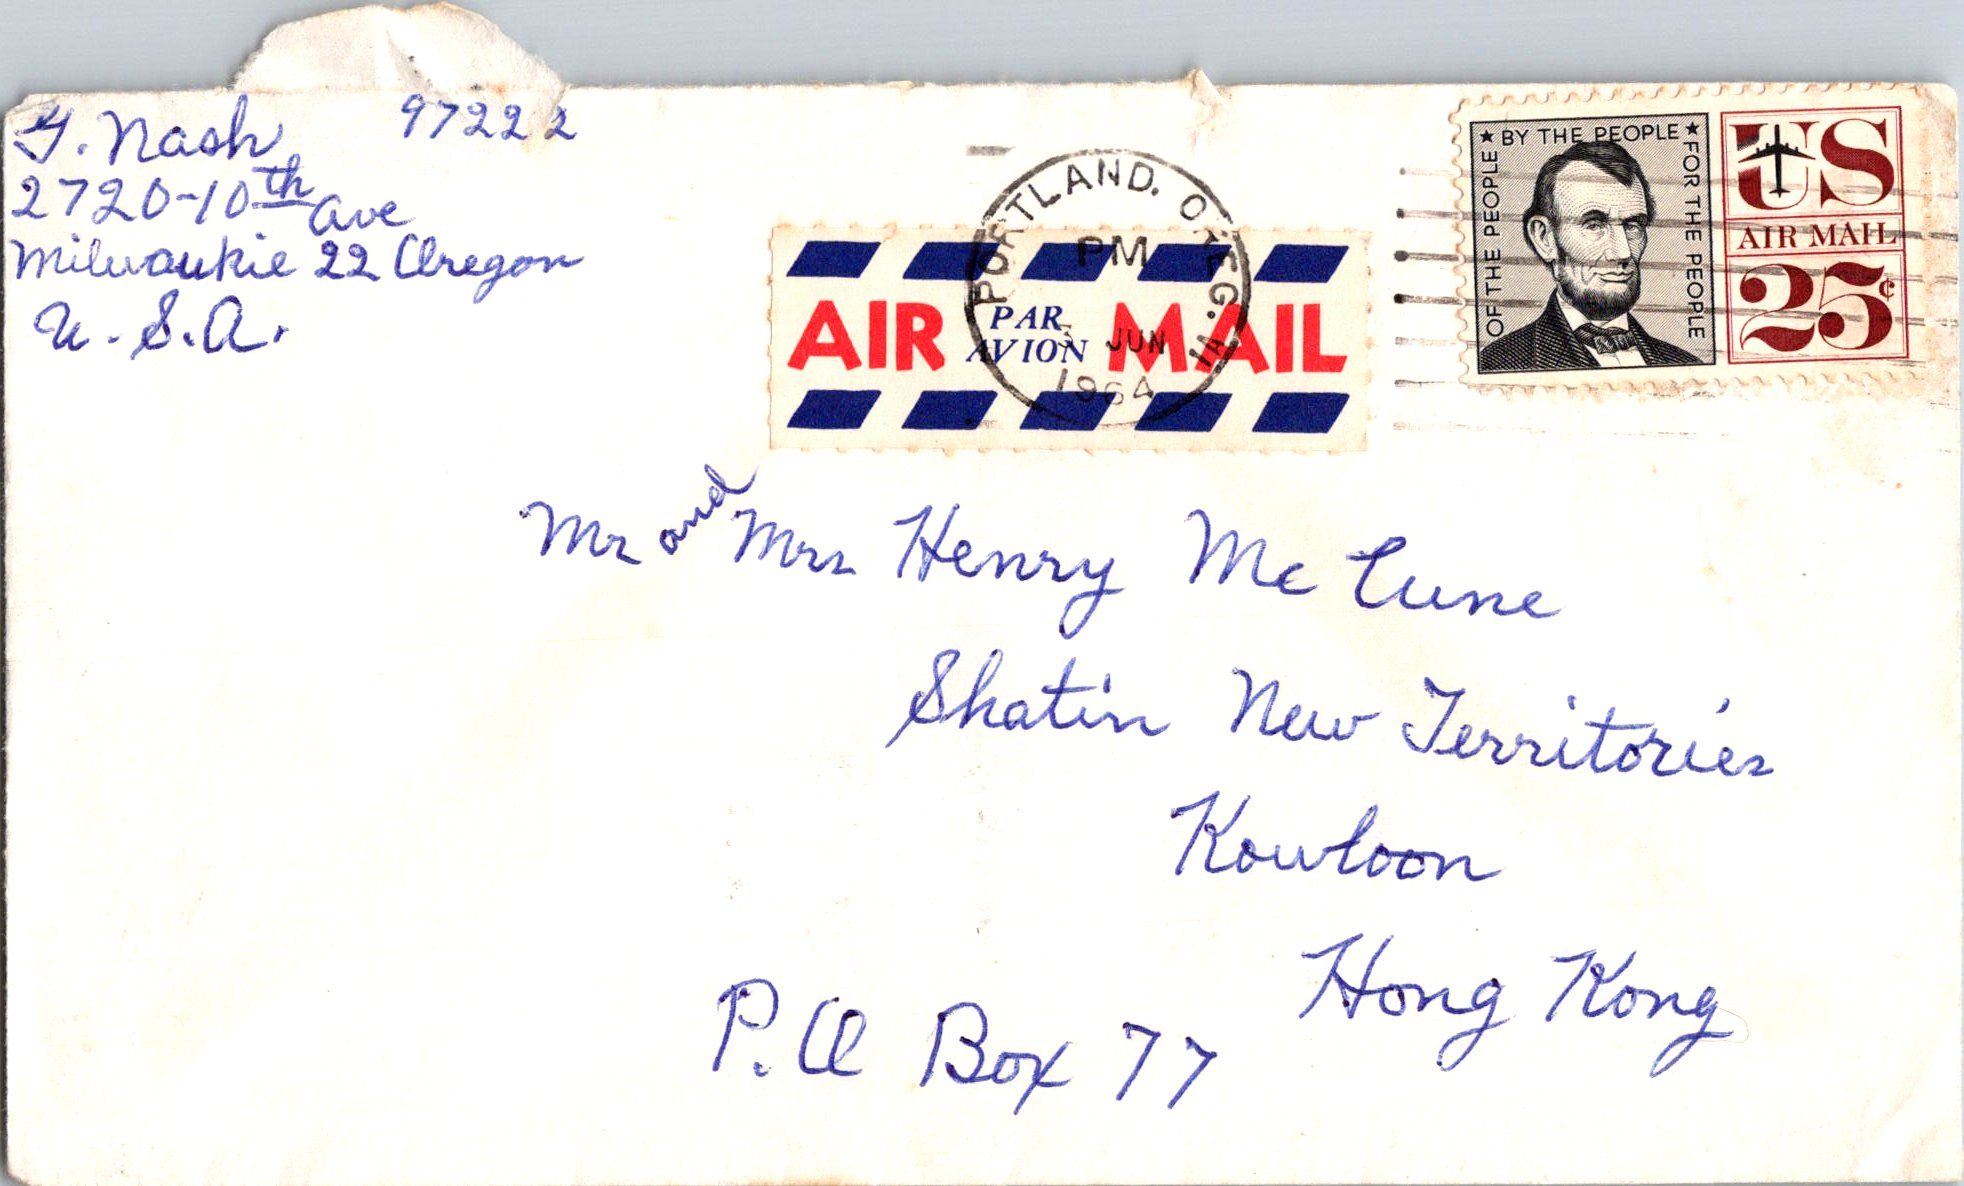 Y. Nash 97222
2720-10th Ave
Milwaukie 22 Oregon
U.S.A.
PORTLAND. OREG.
PM
JUN
1964
AIR PAR AVION MAIL
OF THE PEOPLE ★ BY THE PEOPLE ★ FOR THE PEOPLE
US
AIR MAIL
25¢
Mr and Mrs Henry Mc Cune
Shatin New Territories
Kowloon
Hong Kong
P.O Box 77